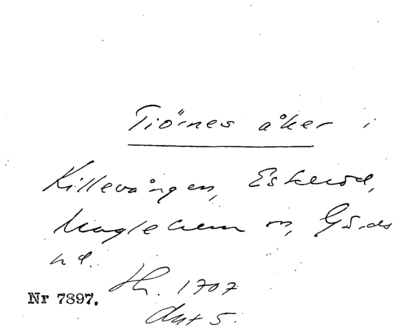 Tiörnes åker i
Killevången, Eskeröd,
Maglehem sn, Gärds
hd.
Lh. 1707
Nr 7897.
Akt 5.